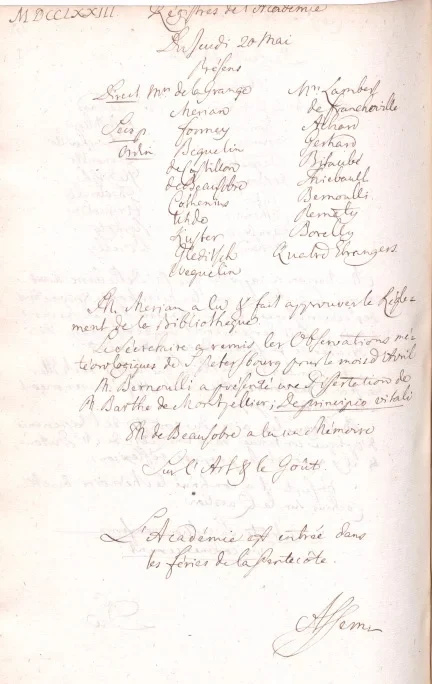 MDCCLXXIII. Registres de l'Academie
Du Jeudi 20 Mai
Présens
Direct Mrs de la Grange
Merian
Secr. Formey
Ordin Beguelin
de Castillon
de Beausobre
Cothenius
Kuster
Gleditsch
Weguelin
Mrs Lambert
de Francheville
Achard
Gerhard
Bitaubé
Thiebault
Bernoulli
Pernety
Borelly
Quatre Etrangers
M. Merian a lu & fait approuver le Régle-
ment de la Bibliotheque.
Le Secretaire a remis les Observations mé-
téorologiques de S. Petersbourg pour le mois d'Avril
M. Bernoulli a présenté une Dissertation de
M. Barthe de Montpellier; De principio vitali
M. de Beausobre a lu un Mémoire
Sur l'Art & le Goût.
L'Académie est entrée dans
les féries de la Pentecôte.